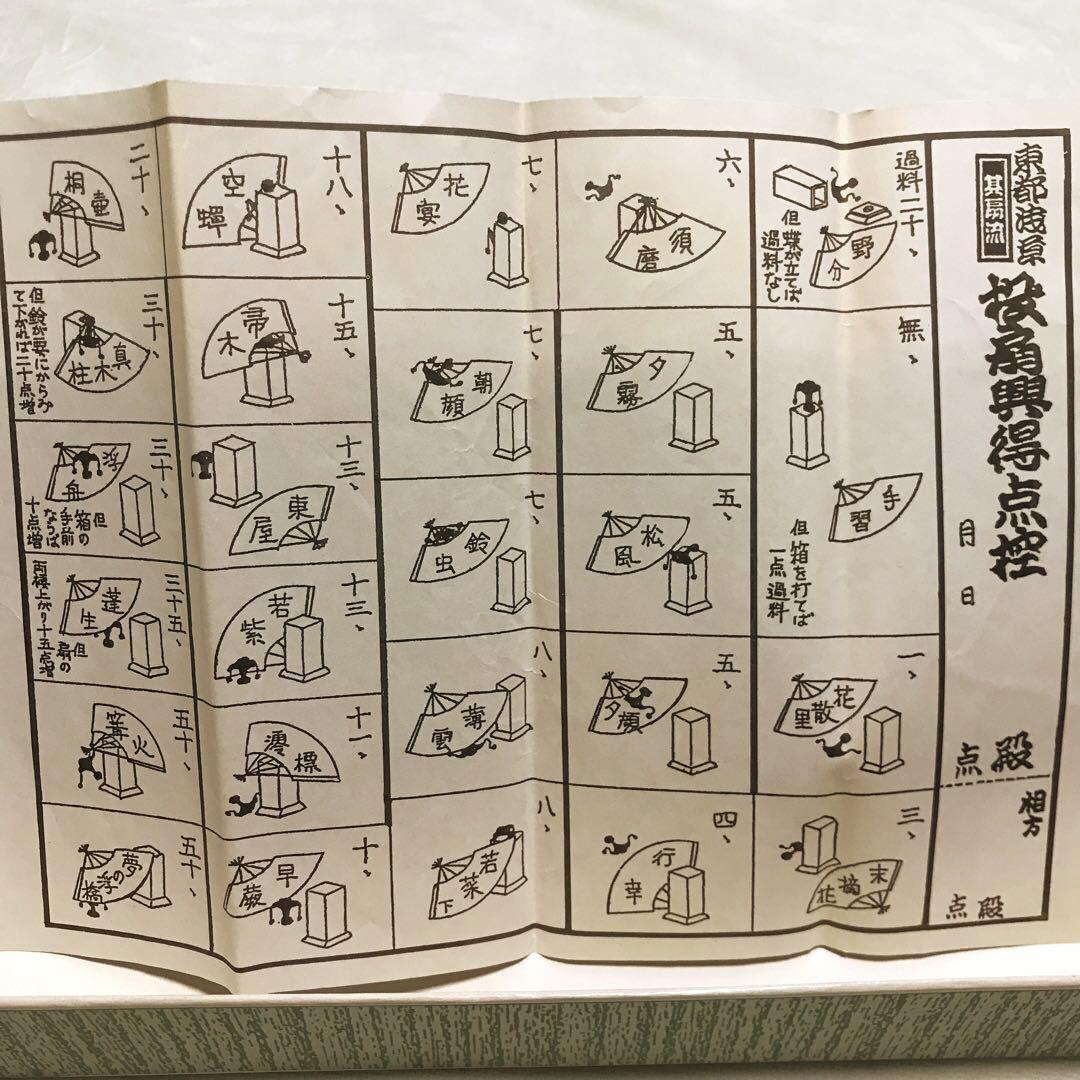 東都浅草
其扇流
投扇興得点控
月 日
殿
点
相方
殿
点
過料二十、
野分
但蝶が立てば
過料なし
無、
手習
但箱を打てば
一点過料
一、
花散里
三、
末摘花
六、
須磨
五、
夕霧
五、
松風
五、
夕顔
四、
行幸
七、
花宴
七、
朝顔
七、
鈴虫
八、
薄雲
八、
若菜下
十八、
空蝉
十五、
帚木
十三、
東屋
十三、
若紫
十一、
澪標
十、
早蕨
二十、
桐壷
三十、
真木柱
但鈴が要にからみ
て下がれば二十点増
三十、
浮舟
但箱の
手前
ならば
十点増
三十五、
蓬生
但扇の
両褄上がり十五点増
五十、
篝火
五十、
夢の浮橋